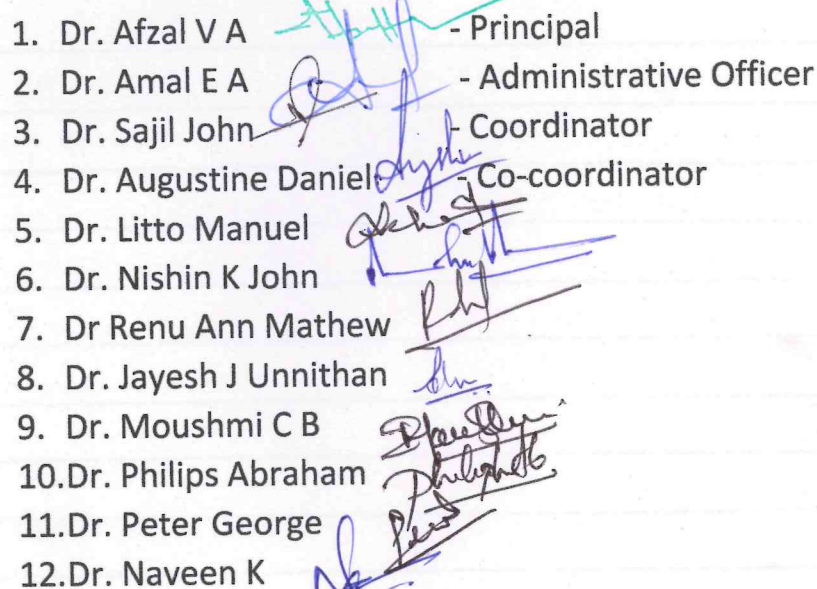 1. Dr. Afzal V A - Principal
2. Dr. Amal E A - Administrative Officer
3. Dr. Sajil John - Coordinator
4. Dr. Augustine Daniel - Co-coordinator
5. Dr. Litto Manuel
6. Dr. Nishin K John
7. Dr Renu Ann Mathew
8. Dr. Jayesh J Unnithan
9. Dr. Moushmi C B
10.Dr. Philips Abraham
11.Dr. Peter George
12.Dr. Naveen K